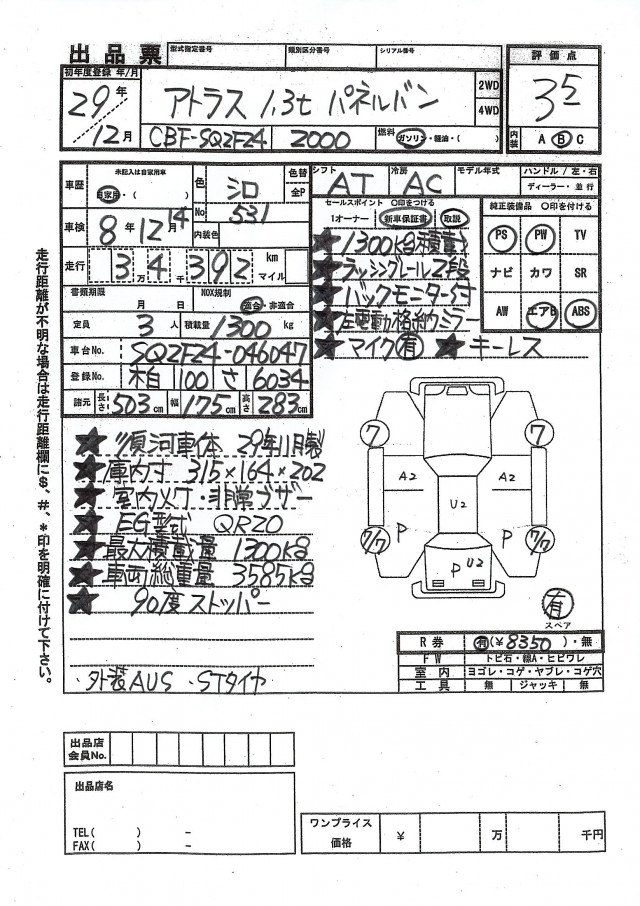 出品票
型式指定番号 類別区分番号 シリアル番号
評価点
初年度登録 年/月
29年
/12月
アトラス 1.3t パネルバン
2WD
4WD
CBF-SQ2F24 2000
燃料 ガソリン・軽油・( )
3 5
内装 A B C
車歴 未記入は自家用車
自家用・( )
色 シロ 色替
全P
No 531
内装色
シフト AT 冷房 AC モデル年式
ハンドル / 左・右
ディーラー・並行
車検 8年12月14
走行 34392 km
マイル
万 千
書類期限 月 日
NOX規制 適合・非適合
定員 3人 積載量 1300kg
車台No. SQ2F24-046047
登録No. 柏 100 さ 6034
諸元 長さ 503cm 幅 175cm 高さ 283cm
セールスポイント 〇印をつける
1オーナー 新車保証書 取説
★1300kg積載
★ラッシングレール2段
★バックモニター付
★左電動格納ミラー
★マイク有 ★キーレス
純正装備品 〇印を付ける
PS PW TV
ナビ カワ SR
AW エアB ABS
走行距離が不明な場合は走行距離欄に$、#、*印を明確に付けて下さい。
★須河車体 29年11月製
★庫内寸 315×164×202
★室内メワ・非常ブザー
★EG型式 QR20
★最大積載量 1300kg
★車両総重量 3585kg
★90度ストッパー
・外装AUS ・STタイヤ
7 7
A2 A2
U2
7/7 P P 7/7
P U2
有
スペア
R券 有(¥8350)・無
FW トビ石・線A・ヒビワレ
室内 ヨゴレ・コゲ・ヤブレ・コゲ穴
工具 無 ジャッキ 無
出品店
会員No.
出品店名
TEL( ) -
FAX( ) -
ワンプライス
価格 ¥ 万 千円